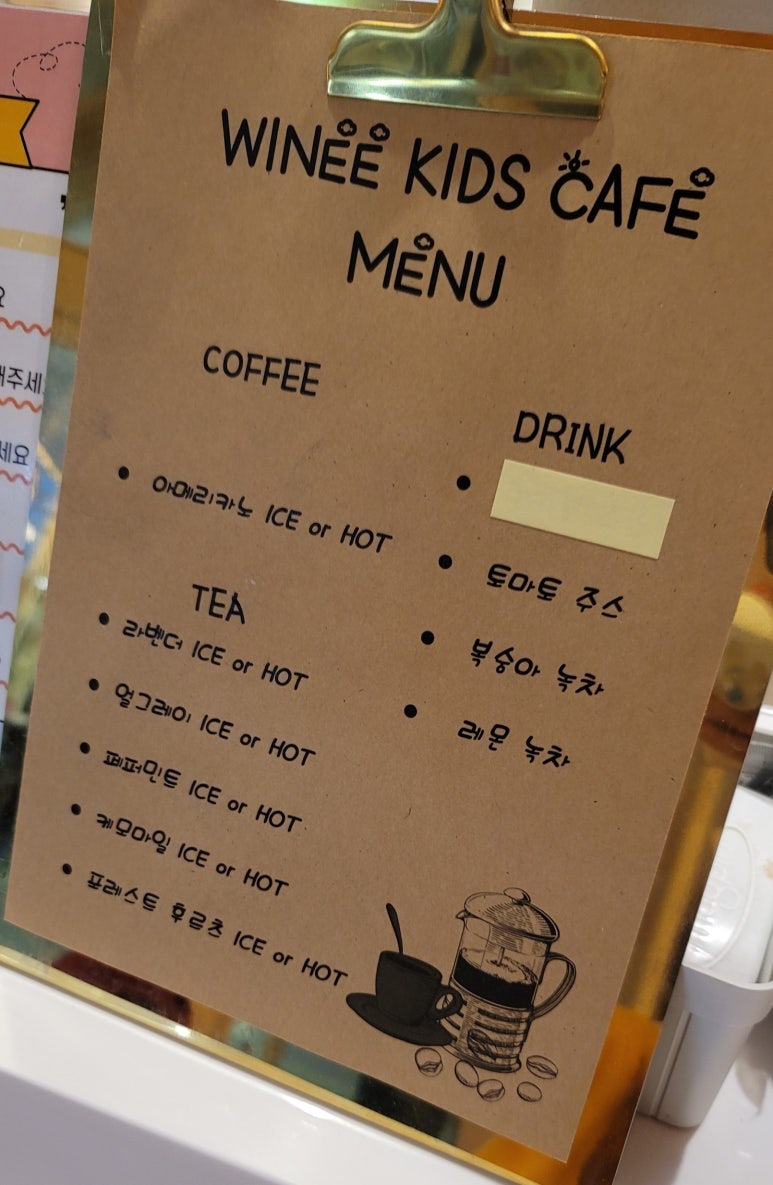 WINEE KIDS CAFE
MENU
COFFEE
아메리카노 ICE or HOT
TEA
라벤더 ICE or HOT
얼그레이 ICE or HOT
페퍼민트 ICE or HOT
케모마일 ICE or HOT
포레스트 후르츠 ICE or HOT
DRINK
토마토 주스
복숭아 녹차
레몬 녹차
세요